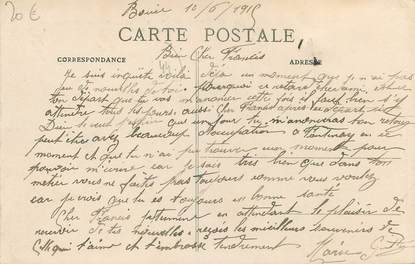 20 €
10/6/1915
CARTE POSTALE
CORRESPONDANCE
ADRESSE
Bien Cher Francis
Je suis inquiète voilà déja un moment que je n'ai pas
de nouvelles de toi. pourquoi ce retard cher ami, est ce
ton départ que tu vas m'annoncer cette fois il faut bien s'y
attendre tous les jours, aussi cher Francis après un
Dieu veut espérer qu'un jour tu m'annonceras ton retour
peut être avez beaucoup d'occupation à Fontenay en ce
moment et que tu n'as pu trouver un moment pour
pouvoir m'écrire car je sais très bien que dans ton
métier vous ne faites pas toujours comme vous voulez
car je vois que tu es toujours en bonne santé
Cher Francis en attendant le plaisir de
recevoir de tes nouvelles, reçois les meilleurs souvenirs de
qui t'aime et t'embrasse tendrement